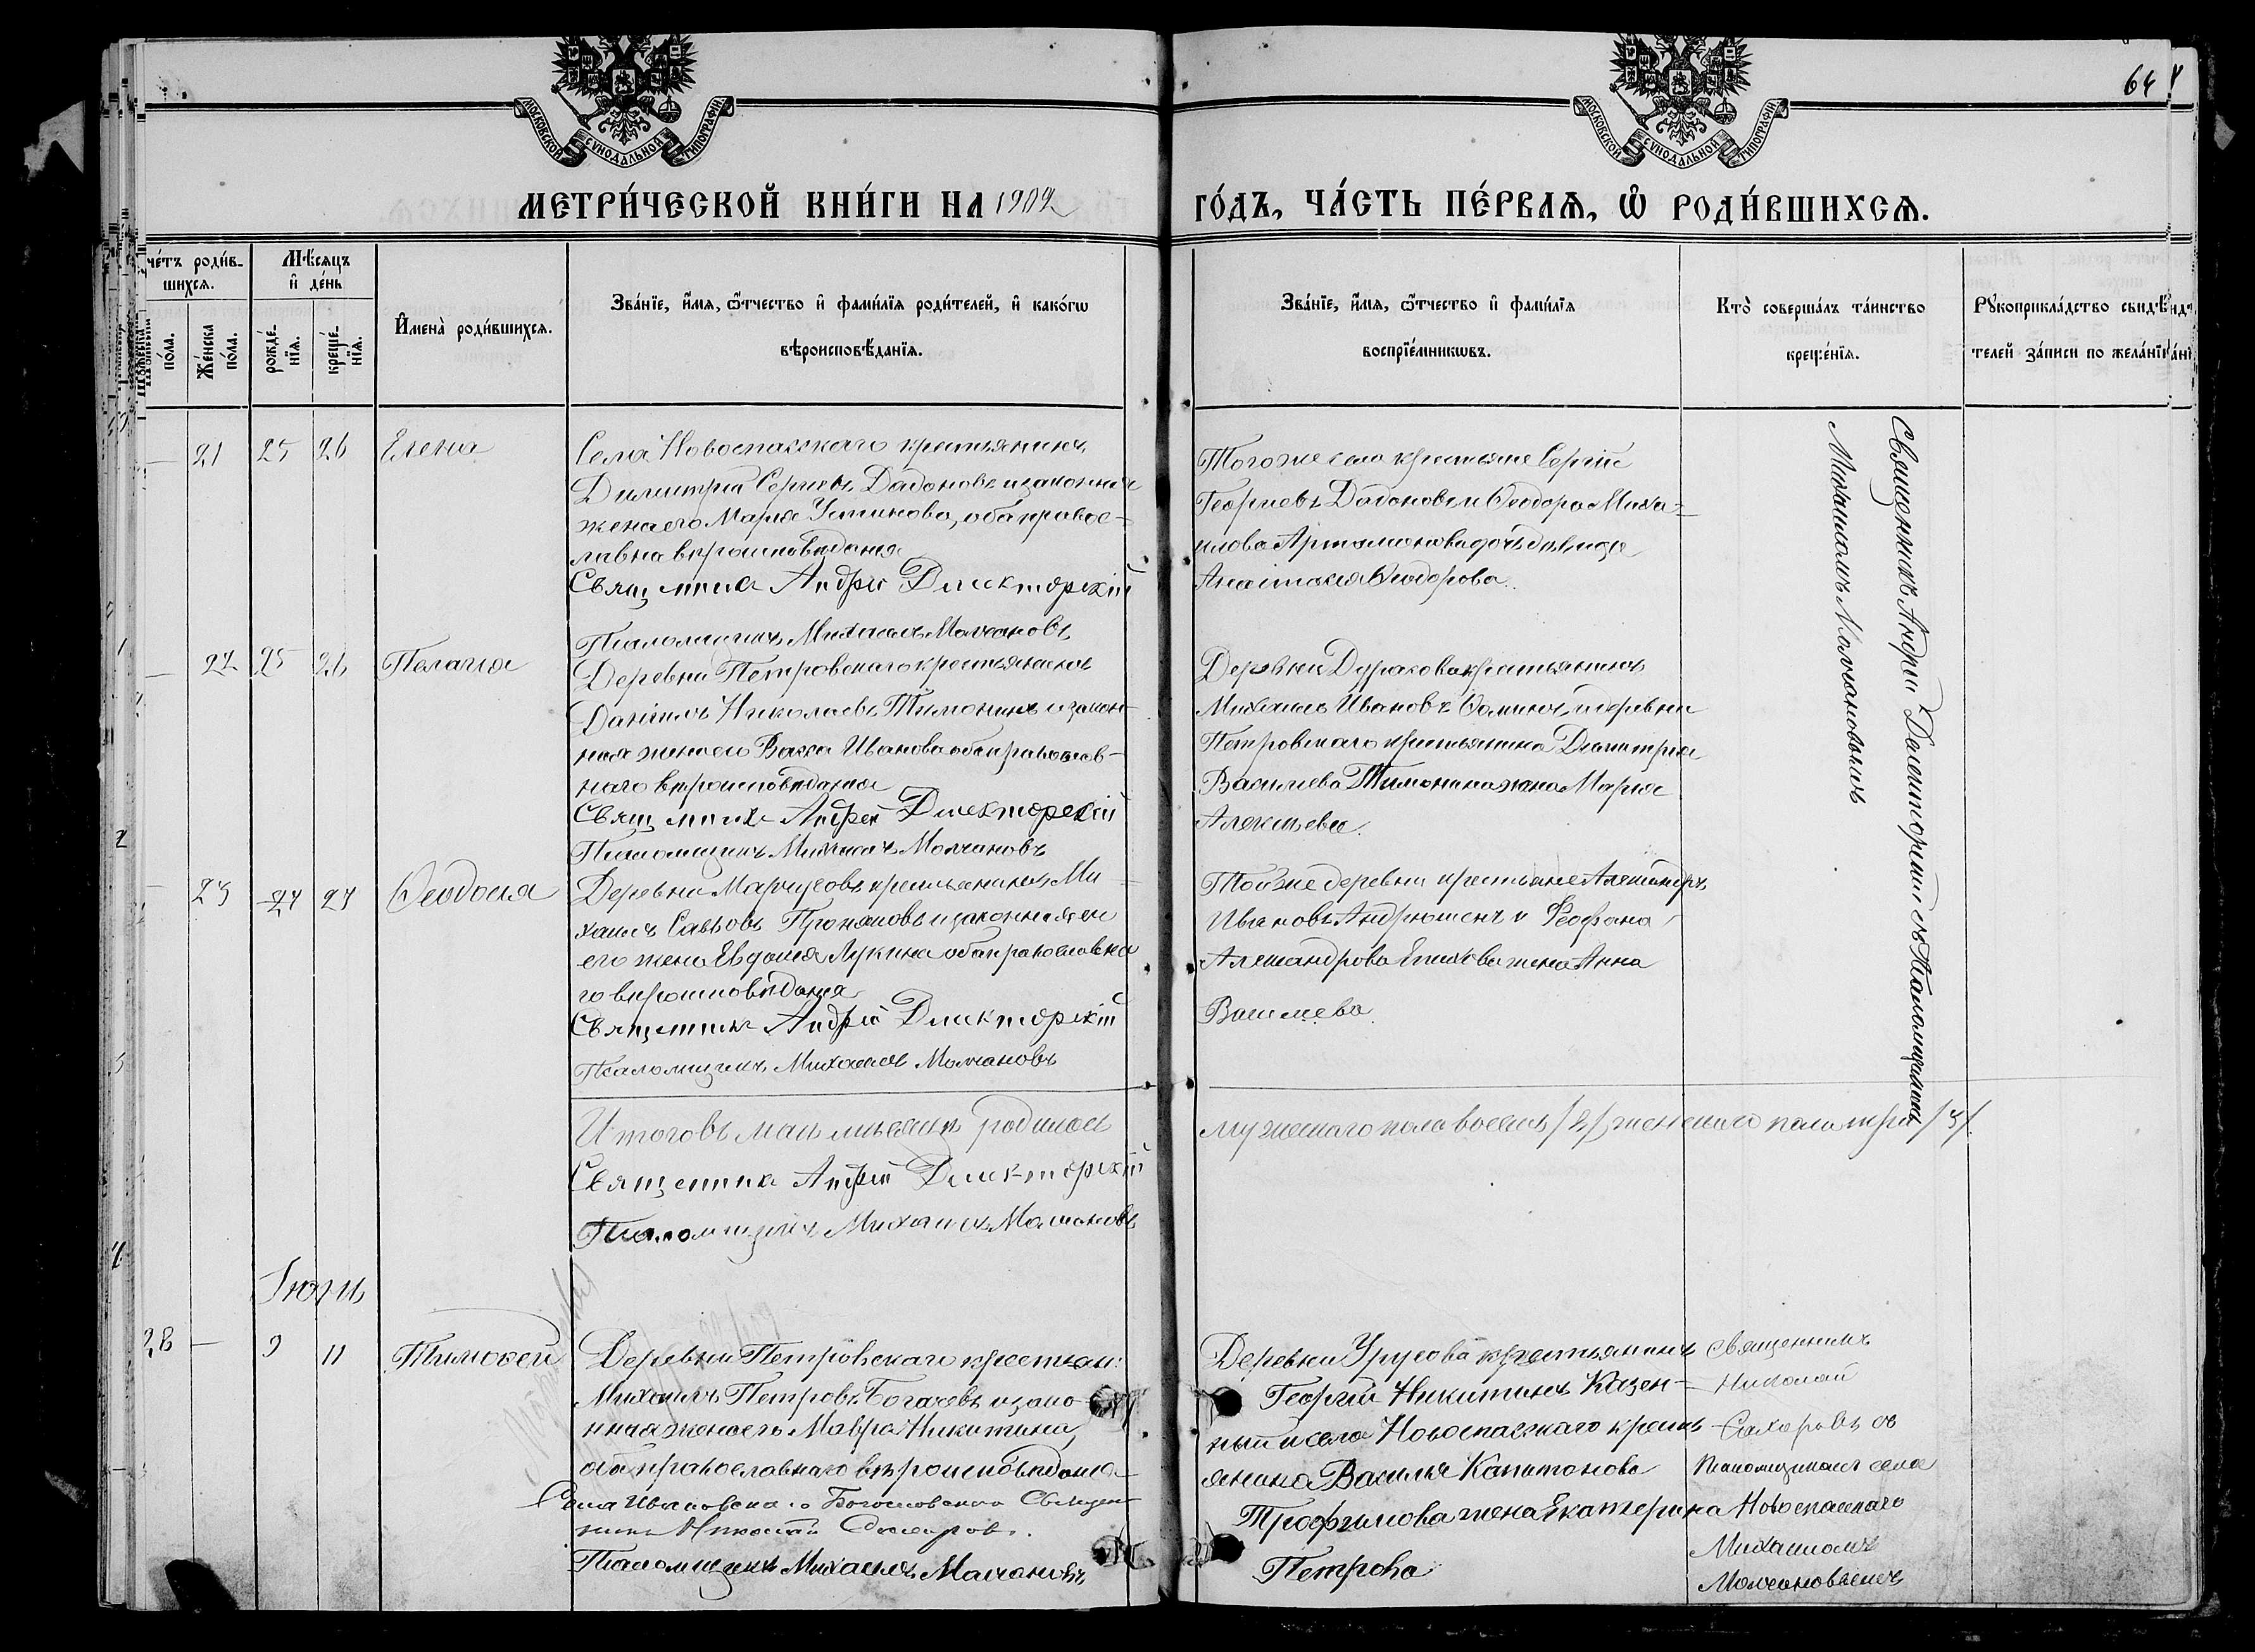 64
МОСКОВСКОЙ СУНОДАЛЬНОЙ ТИПОГРАФІИ
МОСКОВСКОЙ СУНОДАЛЬНОЙ ТИПОГРАФІИ
МЕТРИ́ЧЕСКОЙ КНИ́ГИ НА 1902
ГО́ДЪ, ЧА́СТЬ ПЕ́РВАѦ, Ѡ҆ РОДИ́ВШИХСѦ.
че́тъ роди́в-
шихсѧ.
Мѣ́сѧцъ
и҆ де́нь
пола.
Же́нска
по́ла.
рожде́-
нїѧ.
креще́-
нїѧ.
И҆мена̀ роди́вшихсѧ.
Зва́нїе, и҆́мѧ, ѻ҆́тчество и҆ фами́лїѧ роди́телей, и҆ како́гѡ
вѣроисповѣ́данїѧ.
Зва́нїе, и҆́мѧ, ѻ҆́тчество и҆ фами́лїѧ
воспрїе́мникѡвъ.
Кто̀ соверша́лъ та́инство
креще́нїѧ.
Рꙋкоприкла́дство свидѣ́
телей за́писи по жела́нїю
21 25 26 Елена
Села Новоспасскаго крестьянинъ
Димитрій Сергіевъ Дадоновъ и законная
жена его Марія Устинова, оба правос-
лавна вѣроисповѣданія
Священникъ Андрей Диекторскій
Псаломщикъ Михаилъ Молчановъ
Того же села крестьяне Сергій
Георгіевъ Дадоновъ и Ѳеодора Миха-
илова Артамонова дочь дѣвица
Анастасія Ѳеодорова.
Священникъ Андрей Диекторскій съ Псаломщикомъ
Михаиломъ Молчановымъ
22 25 26 Пелагія
Деревни Петровскаго крестьянинъ
Даніилъ Николаевъ Тимонинъ и закон-
ная жена его Васса Иванова оба православ-
наго вѣроисповѣданія
Священникъ Андрей Диекторскій
Псаломщикъ Михаилъ Молчановъ
Деревни Дуракова крестьянинъ
Михаилъ Ивановъ Ѳоминъ и деревни
Петровскаго крестьянина Димитрія
Василіева Тимонина жена Марія
Алексѣева.
23 27 27 Ѳеодосія
Деревни Марчуговъ крестьянинъ Ми-
хаилъ Саввовъ и законная
его жена Евдокія Лукина оба православна
го вѣроисповѣданія
Священникъ Андрей Диекторскій
Псаломщикъ Михаилъ Молчановъ
Той же деревни крестьяне Александръ
Ивановъ Андрюшенъ и Феофана
Александрова жена Анна
Василіева
Итого въ маѣ мѣсяцѣ родилось
мужескаго пола восемь /8/, женскаго пола три /3/.
Священникъ Андрей Диекторскій
Псаломщикъ Михаилъ Молчановъ
Іюнь
28 9 11 Тимоѳей
Деревни Петровскаго крестьян:
Михаилъ Петровъ Богачевъ и зако-
нная жена его Мавра Никитина,
оба православнаго вѣроисповѣданія
Села Ивановска-го Богословскаго Священ
никъ Николай Сахаровъ.
Псаломщикъ Михаилъ Молчановъ
Деревни Урусова крестьянинъ
Георгій Никитинъ Казен-
ный и села Новоспасскаго кресть
янина Василія Капитонова
Трофимова жена Екатерина
Петрова
Священникъ
Николай
Сахаровъ съ
Псаломщикомъ села
Новоспасскаго
Михаиломъ
Молчановымъ